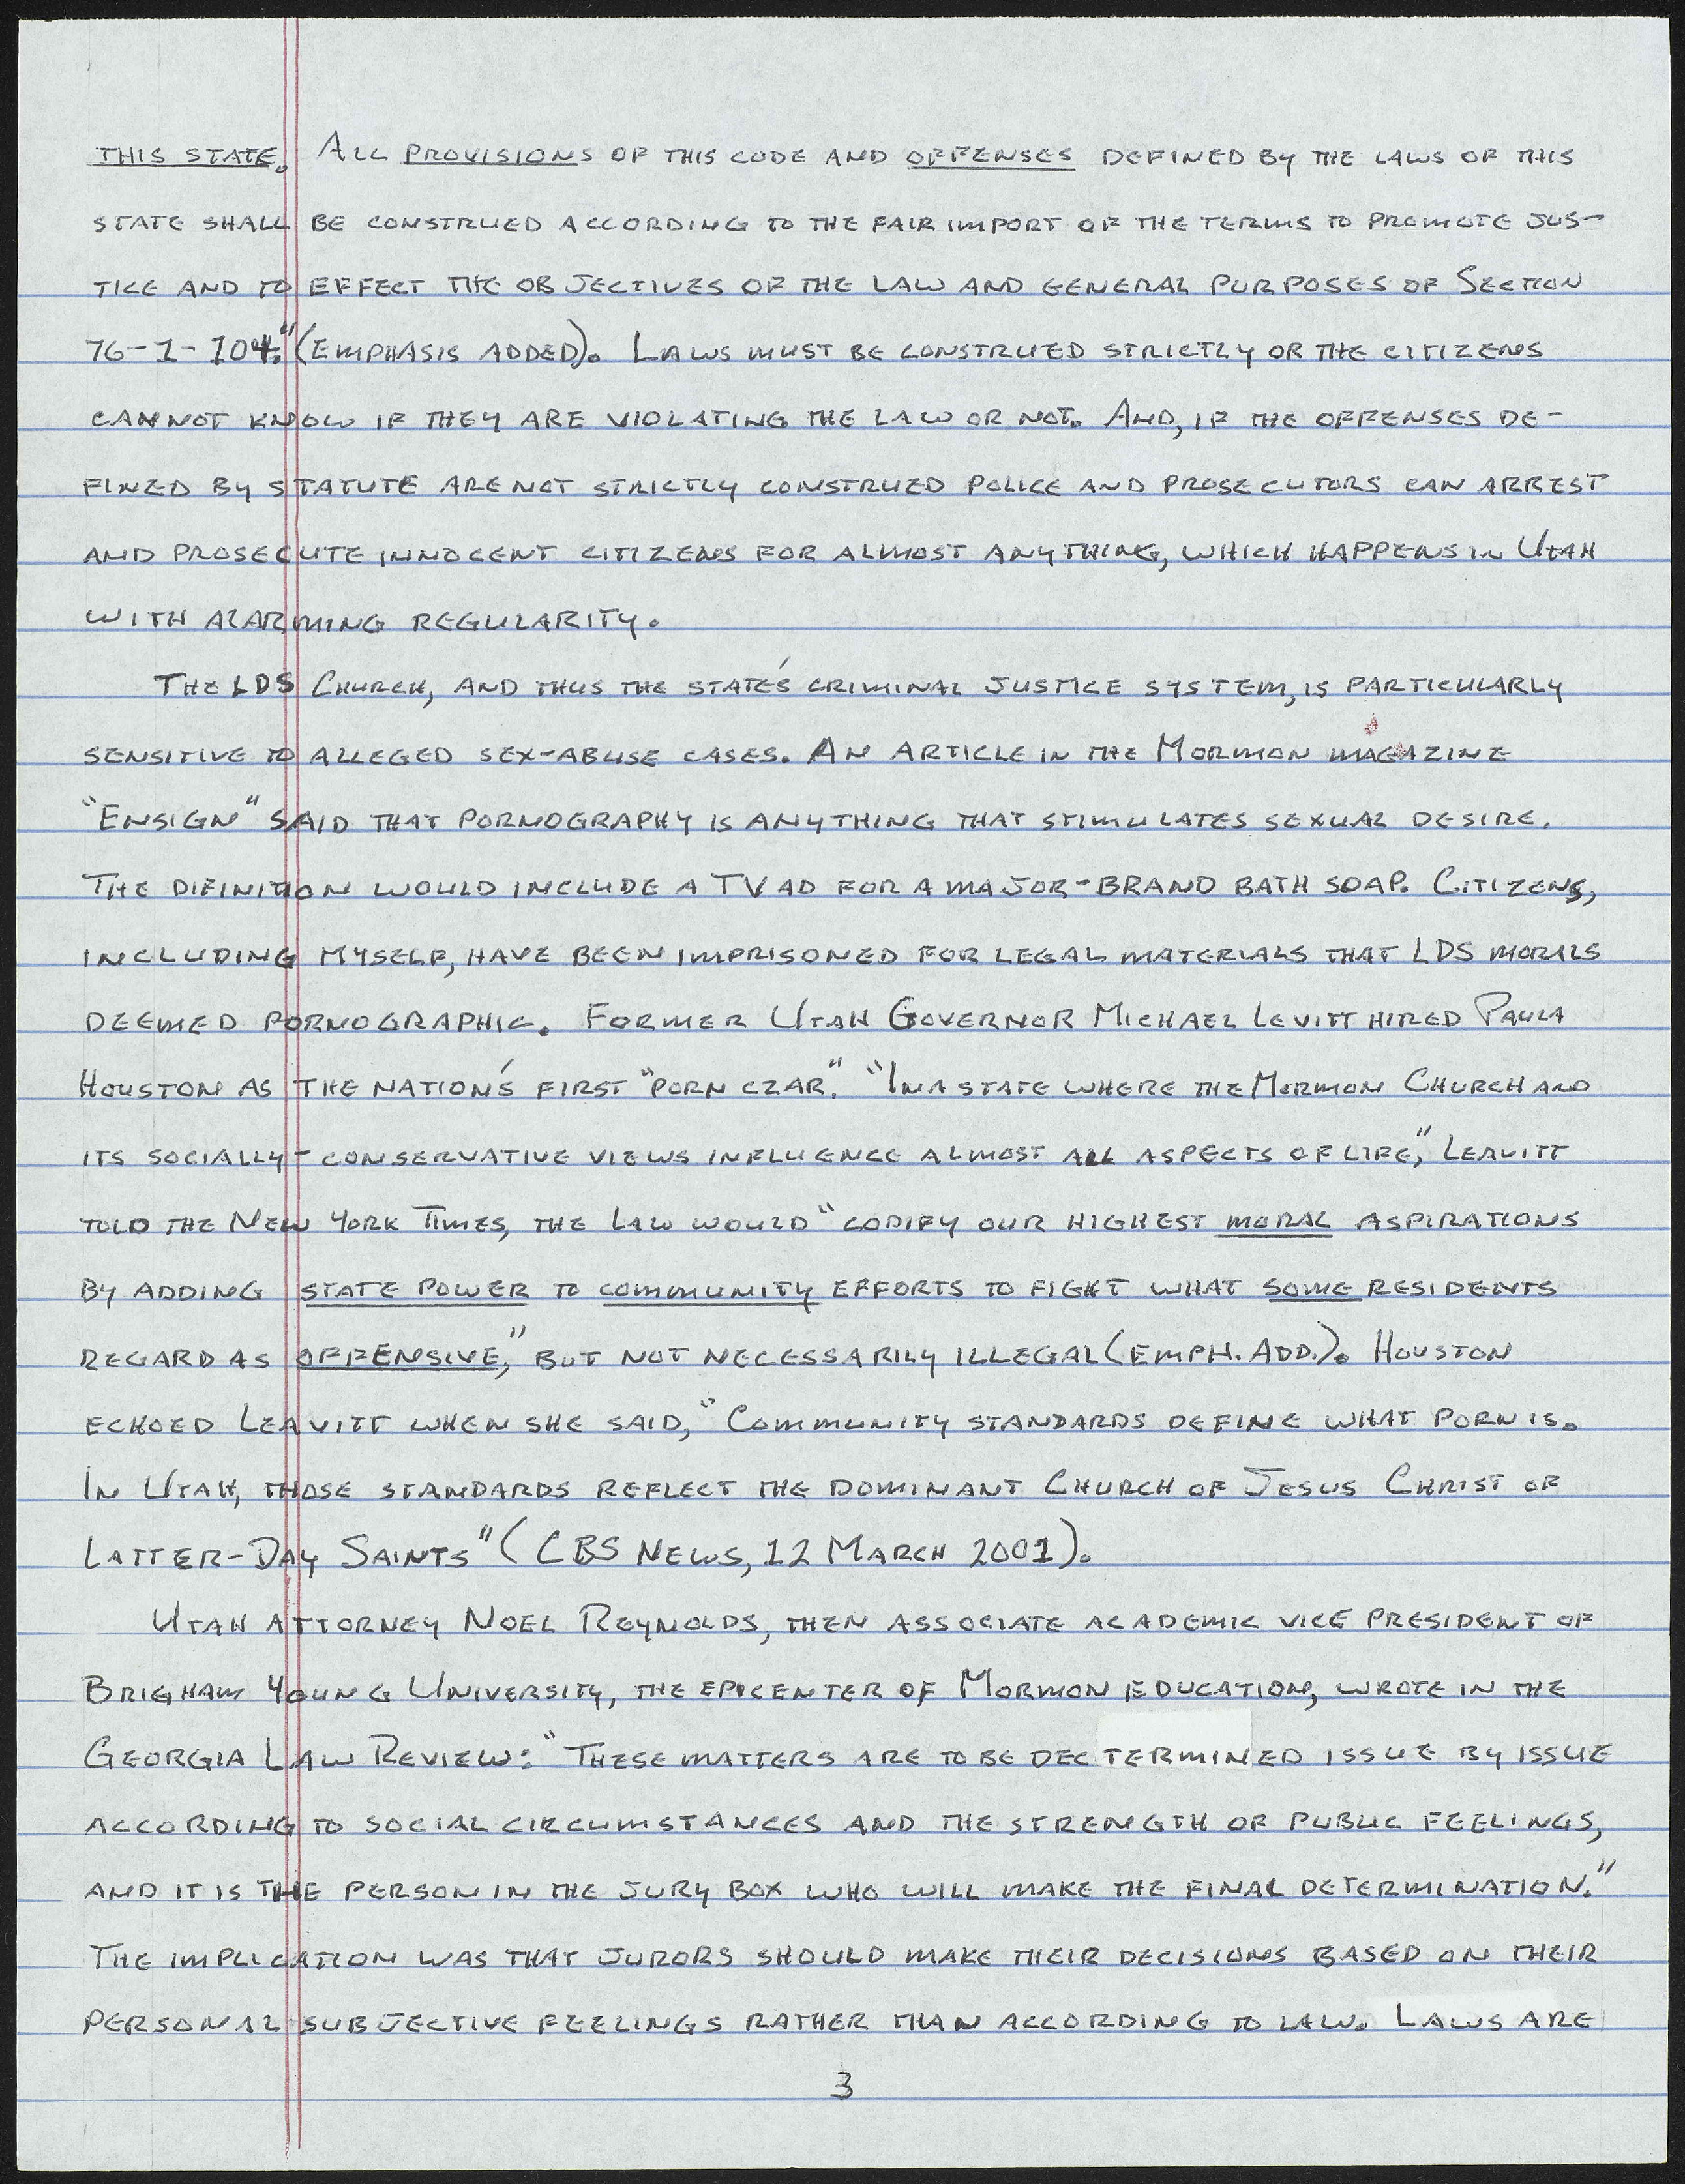 THIS STATE. ALL PROVISIONS OF THIS CODE AND OFFENSES DEFINED BY THE LAWS OF THIS
STATE SHALL BE CONSTRUED ACCORDING TO THE FAIR IMPORT OF THE TERMS TO PROMOTE JUS-
TICE AND TO EFFECT THE OBJECTIVES OF THE LAW AND GENERAL PURPOSES OF SECTION
76-1-104." (EMPHASIS ADDED). LAWS MUST BE CONSTRUED STRICTLY OR THE CITIZENS
CANNOT KNOW IF THEY ARE VIOLATING THE LAW OR NOT. AND, IF THE OFFENSES DE-
FINED BY STATUTE ARE NOT STRICTLY CONSTRUED POLICE AND PROSECUTORS CAN ARREST
AND PROSECUTE INNOCENT CITIZENS FOR ALMOST ANYTHING, WHICH HAPPENS IN UTAH
WITH ALARMING REGULARITY.
THE LDS CHURCH, AND THUS THE STATE'S CRIMINAL JUSTICE SYSTEM, IS PARTICULARLY
SENSITIVE TO ALLEGED SEX-ABUSE CASES. AN ARTICLE IN THE MORMON MAGAZINE
"ENSIGN" SAID THAT PORNOGRAPHY IS ANYTHING THAT STIMULATES SEXUAL DESIRE.
THE DIFINITION WOULD INCLUDE A TV AD FOR A MAJOR-BRAND BATH SOAP. CITIZENS,
INCLUDING MYSELF, HAVE BEEN IMPRISONED FOR LEGAL MATERIALS THAT LDS MORALS
DEEMED PORNOGRAPHIC. FORMER UTAH GOVERNOR MICHAEL LEVITT HIRED PAULA
HOUSTON AS THE NATION'S FIRST "PORN CZAR." "IN A STATE WHERE THE MORMON CHURCH AND
ITS SOCIALLY-CONSERVATIVE VIEWS INFLUENCE ALMOST ALL ASPECTS OF LIFE," LEAVITT
TOLD THE NEW YORK TIMES, THE LAW WOULD "CODIFY OUR HIGHEST MORAL ASPIRATIONS
BY ADDING STATE POWER TO COMMUNITY EFFORTS TO FIGHT WHAT SOME RESIDENTS
REGARD AS OFFENSIVE," BUT NOT NECESSARILY ILLEGAL (EMPH. ADD.). HOUSTON
ECHOED LEAVITT WHEN SHE SAID, "COMMUNITY STANDARDS DEFINE WHAT PORN IS.
IN UTAH, THOSE STANDARDS REFLECT THE DOMINANT CHURCH OF JESUS CHRIST OF
LATTER-DAY SAINTS" (CBS NEWS, 12 MARCH 2001).
UTAH ATTORNEY NOEL REYNOLDS, THEN ASSOCIATE ACADEMIC VICE PRESIDENT OF
BRIGHAM YOUNG UNIVERSITY, THE EPICENTER OF MORMON EDUCATION, WROTE IN THE
GEORGIA LAW REVIEW: "THESE MATTERS ARE TO BE DECTERMINED ISSUE BY ISSUE
ACCORDING TO SOCIAL CIRCUMSTANCES AND THE STRENGTH OF PUBLIC FEELINGS,
AND IT IS THE PERSON IN THE JURY BOX WHO WILL MAKE THE FINAL DETERMINATION."
THE IMPLICATION WAS THAT JURORS SHOULD MAKE THEIR DECISIONS BASED ON THEIR
PERSONAL SUBJECTIVE FEELINGS RATHER THAN ACCORDING TO LAW. LAWS ARE
3